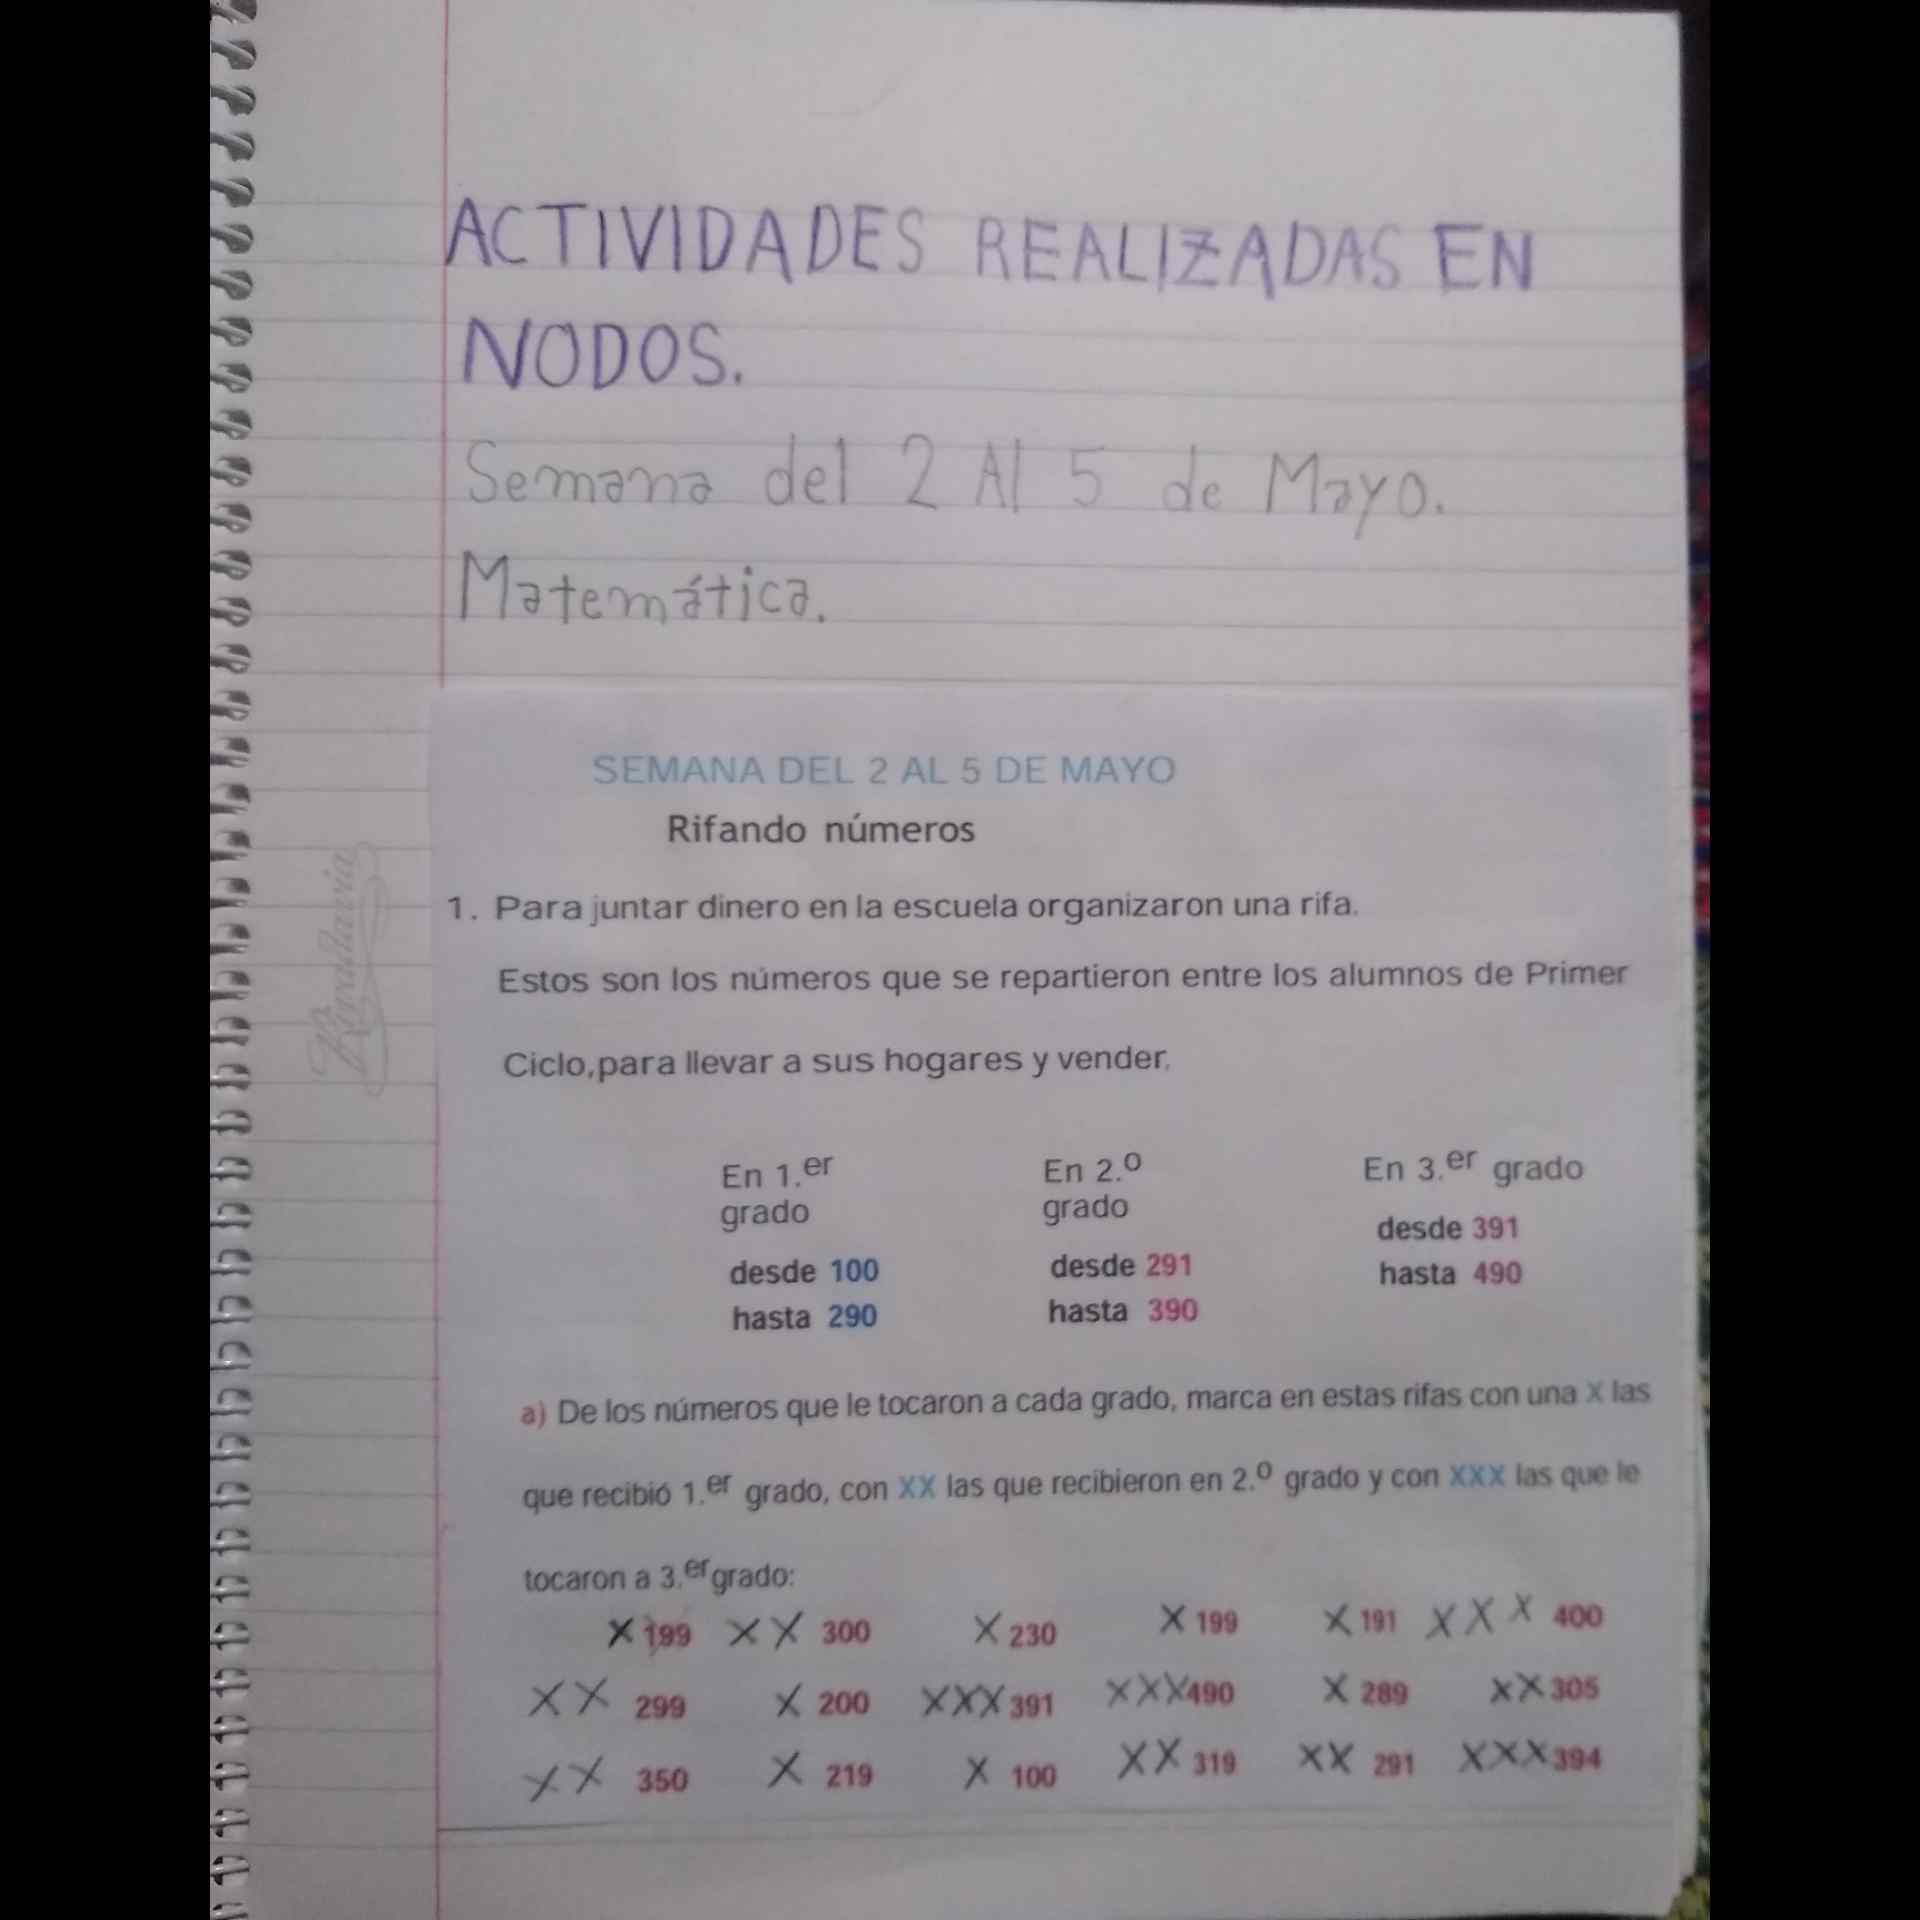 ACTIVIDADES REALIZADAS EN
NODOS.
Semana del 2 Al 5 de Mayo.
Matemática.
SEMANA DEL 2 AL 5 DE MAYO
Rifando números
1. Para juntar dinero en la escuela organizaron una rifa.
Estos son los números que se repartieron entre los alumnos de Primer
Ciclo,para llevar a sus hogares y vender.
En 1.er grado
desde 100
hasta 290
En 2.º grado
desde 291
hasta 390
En 3.er grado
desde 391
hasta 490
a) De los números que le tocaron a cada grado, marca en estas rifas con una X las
que recibió 1.er grado, con XX las que recibieron en 2.º grado y con XXX las que le
tocaron a 3.er grado:
X 199 XX 300 X 230 X 199 X 191 XXX 400
XX 299 X 200 XXX 391 XXX 490 X 289 XX 305
XX 350 X 219 X 100 XX 319 XX 291 XXX 394
Rivadavia